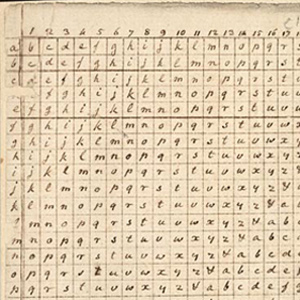 1 2 3 4 5 6 7 8 9 10 11 12 13 14 15 16 17
a b c d e f g h i j k l m n o p q r
b c d e f g h i j k l m n o p q r s
c d e f g h i j k l m n o p q r s t
f g h i j k l m n o p q r s t u
e f g h i j k l m n o p q r s t u v
f g h i j k l m n o p q r s t u v w
g h i j k l m n o p q r s t u v w x
h i j k l m n o p q r s t u v w x y
i j k l m n o p q r s t u v w x y z
j k l m n o p q r s t u v w x y z &
k l m n o p q r s t u v w x y z & a
l m n o p q r s t u v w x y z & a b
m n o p q r s t u v w x y z & a b c
n o p q r s t u v w x y z & a b c d
o p q r s t u v w x y z & a b c d e
p q r s t u v w x y z & a b c d e f